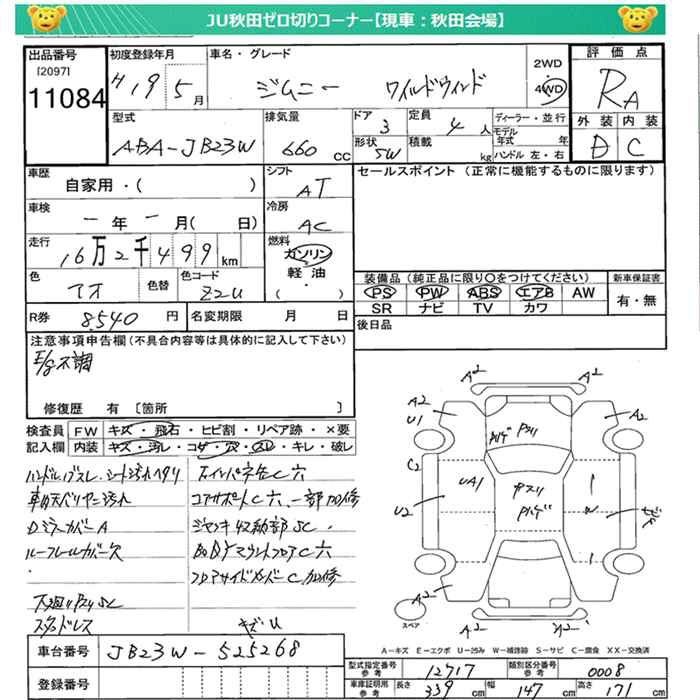 JU秋田ゼロ切りコーナー【現車：秋田会場】
出品番号
[2097]
11084
初度登録年月
H19 5月
車名・グレード
ジムニー ワイルドウインド
2WD
4WD
評価点
RA
外装 内装
D C
型式
ABA-JB23W
排気量
660 CC
ドア
3
形状
SW
定員
4人
積載
kg
ディーラー・並行
モデル年式 年
ハンドル 左・右
車歴
自家用・( )
シフト
AT
セールスポイント (正常に機能するものに限ります)
車検
ー年ー月( 日)
冷房
AC
走行
16万2千499km
燃料
ガソリン
軽油・
( )
色
アオ
色替
色コード
Z2U
装備品 (純正品に限り○をつけてください)
PS PW ABS エアB AW
SR ナビ TV カワ
新車保証書
有・無
R券 8540円
名変期限 月 日
後日品
注意事項申告欄(不具合内容等は具体的に記入して下さい)
E/g不調
修復歴 有 〔箇所 〕
検査員 FW キズ・飛石・ヒビ割・リペア跡・×要
記入欄 内装 キズ・汚レ・コゲ・穴・スレ・キレ・破レ
ハンドル、ブスレ、シート汚れヘタリ
車内天バリヤニ汚れ
DミラーカバーA
ルーフレールカバー欠
下廻りサスリSC
スタッドレス
コアサポートC穴、一部加修
ジャッキ収納部SC
フロアサイドメンバーC加修
キズU
A2
A2
A2
U1
A2
C2
UA1
U2
サスリ
A2
A2
A2
A2
スペア
A－キズ E－エクボ U－凹み W－補修跡 S－サビ C－腐食 XX－交換済
車台番号 JB23W-525268
登録番号
型式指定番号
参考
12717
類別区分番号
参考
0008
車庫証明用
参考
長さ 339cm
幅 147cm
高さ 171cm